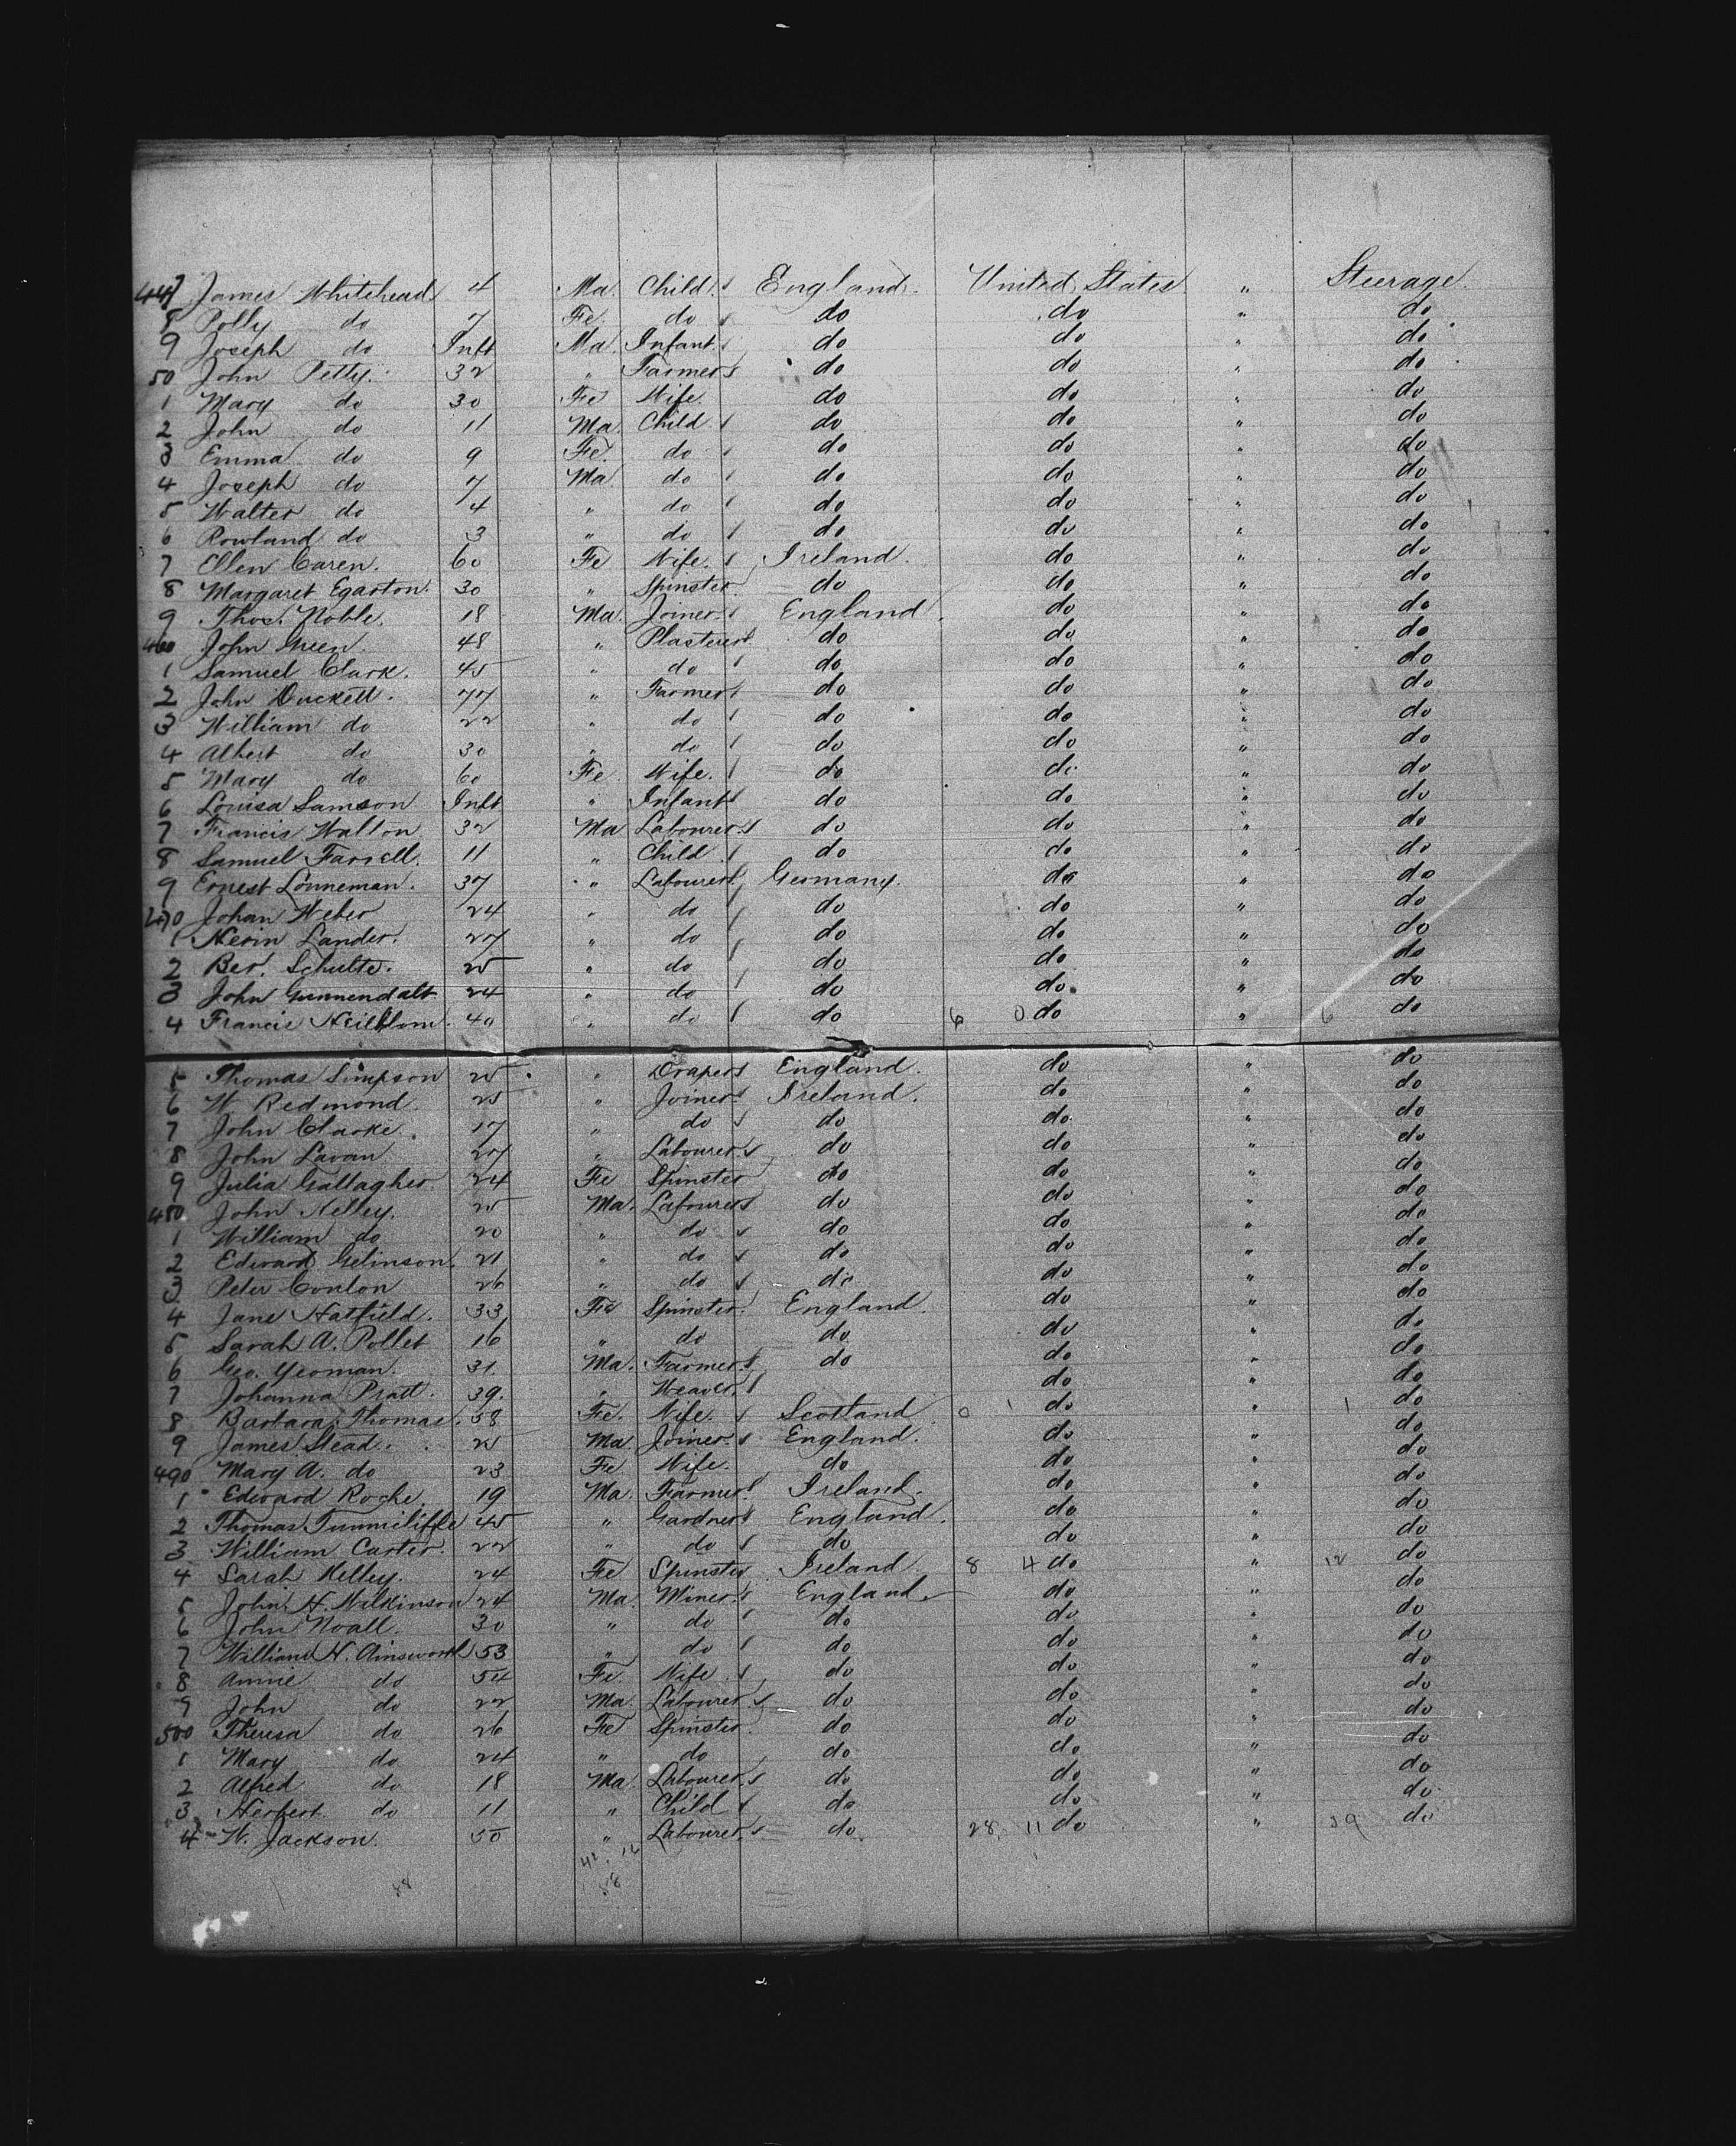 447 James Whitehead 4 Ma. Child. England. United States " Steerage.
8 Polly do 7 Fe. do do do " do
9 Joseph do Inft Ma. Infant. do do " do
50 John Petty. 32 " Farmer do do " do
1 Mary do 30 Fe Wife. do do " do
2 John do 11 Ma. Child do do " do
3 Emma do 9 Fe. do do do " do
4 Joseph do 7 Ma do do do " do
5 Walter do 4 " do do do " do
6 Rowland do 3 " do do do " do
7 Ellen Caren. 60 Fe Wife. Ireland. do " do
8 Margaret Egarton. 30 " Spinster. do do " do
9 Thos. Noble. 18 Ma. Joiner. England. do " do
460 John Green. 48 " Plasterer do do " do
1 Samuel Clark. 45 " do do do " do
2 John Duckett. 77 " Farmer do do " do
3 William do 22 " do do do " do
4 Albert do 30 " do do do " do
5 Mary do 60 Fe. Wife. do do " do
6 Louisa Samson Inft " Infant do do " do
7 Francis Walton 32 Ma Labourer. do do " do
8 Samuel Farrell. 11 " Child do do " do
9 Ernest Lönneman. 37 " Labourer Germany. do " do
470 Johan Weber 24 " do do do " do
1 Lander. 27 " do do do " do
2 Ber. Schulte. 25 " do do do " do
3 John Gunnendalt 24 " do do do " do
4 Francis 40 " do do 6 0 do " 6 do
5 Thomas Simpson 25 " Draper England. do " do
6 W Redmond. 25 " Joiner Ireland. do " do
7 John Clarke. 17 " do do do " do
8 John Lavan 27 " Labourer. do do " do
9 Julia Gallagher 24 Fe Spinster do do " do
480 John Kelley. 25 Ma. Labourer do do " do
1 William do 20 " do do do " do
2 Edward Gelinson. 21 " do do do " do
3 Peter Conlon 26 " do do do " do
4 Jane Hatfield. 33 Fe Spinster. England. do " do
5 Sarah A. Pollet 16 " do do do " do
6 Geo. Yeoman. 31. Ma. Farmer. do do " do
7 Johanna Pratt. 39. " Weaver. do " do
8 Barbara Thomas. 58 Fe. Wife. Scotland 0 1 do " 1 do
9 James Stead. 25 Ma. Joiner. England. do " do
490 Mary A. do 23 Fe Wife. do do " do
1 Edward Roche. 19 Ma. Farmer. Ireland. do " do
2 Thomas Tunnicliffe 45 " Gardner England. do " do
3 William Carter. 22 " do do do " do
4 Sarah Kelley. 24 Fe Spinster Ireland 8 4 do " 12 do
5 John H. Wilkinson 24 Ma. Miner. England. do " do
6 John Noall. 30 " do do do " do
7 William H. Ainsworth 53 " do do do " do
8 Annie do 54 Fe. Wife. do do " do
9 John do 22 Ma Labourer. do do " do
500 Theresa do 26 Fe Spinster. do do " do
1 Mary do 24 " do do do " do
2 Alfred do 18 Ma. Labourer. do do " do
3 Herbert do 11 " Child do do " do
4 W. Jackson. 50 " Labourer. do. 28. 11 do " 39 do
42. 16
58 58